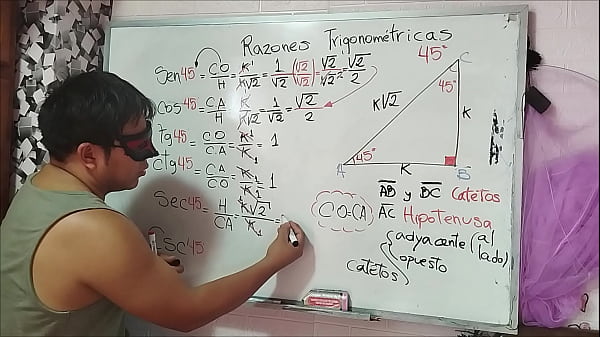 Razones Trigonométricas
Sen45 = CO/H = K¹/K√2 = 1/√2 (√2/√2) = √2/√2² = √2/2
Cos45 = CA/H = K/K√2 = 1/√2 = √2/2
Tg45 = CO/CA = K¹/K₁ = 1
Ctg45 = CA/CO = K¹/K₁ = 1
Sec45 = H/CA = K√2/K₁ =
Csc45
45°
C
45°
K√2
K
A
45°
K
B
CO=CA
AB y BC Catetos
AC Hipotenusa
catetos
adyacente (al lado)
opuesto